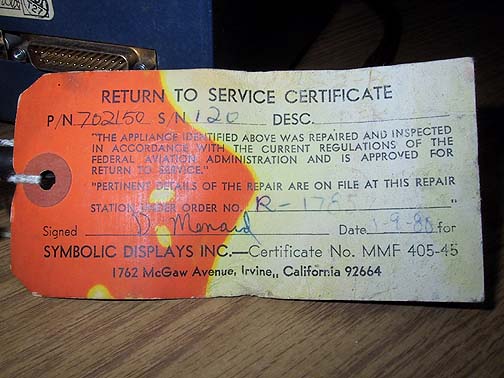 RETURN TO SERVICE CERTIFICATE
P/N 702150 S/N 120 DESC.
"THE APPLIANCE IDENTIFIED ABOVE WAS REPAIRED AND INSPECTED
IN ACCORDANCE WITH THE CURRENT REGULATIONS OF THE
FEDERAL AVIATION ADMINISTRATION AND IS APPROVED FOR
RETURN TO SERVICE."
"PERTINENT DETAILS OF THE REPAIR ARE ON FILE AT THIS REPAIR
STATION UNDER ORDER NO. "
Signed D. Menard Date for
SYMBOLIC DISPLAYS INC.—Certificate No. MMF 405-45
1762 McGaw Avenue, Irvine,, California 92664